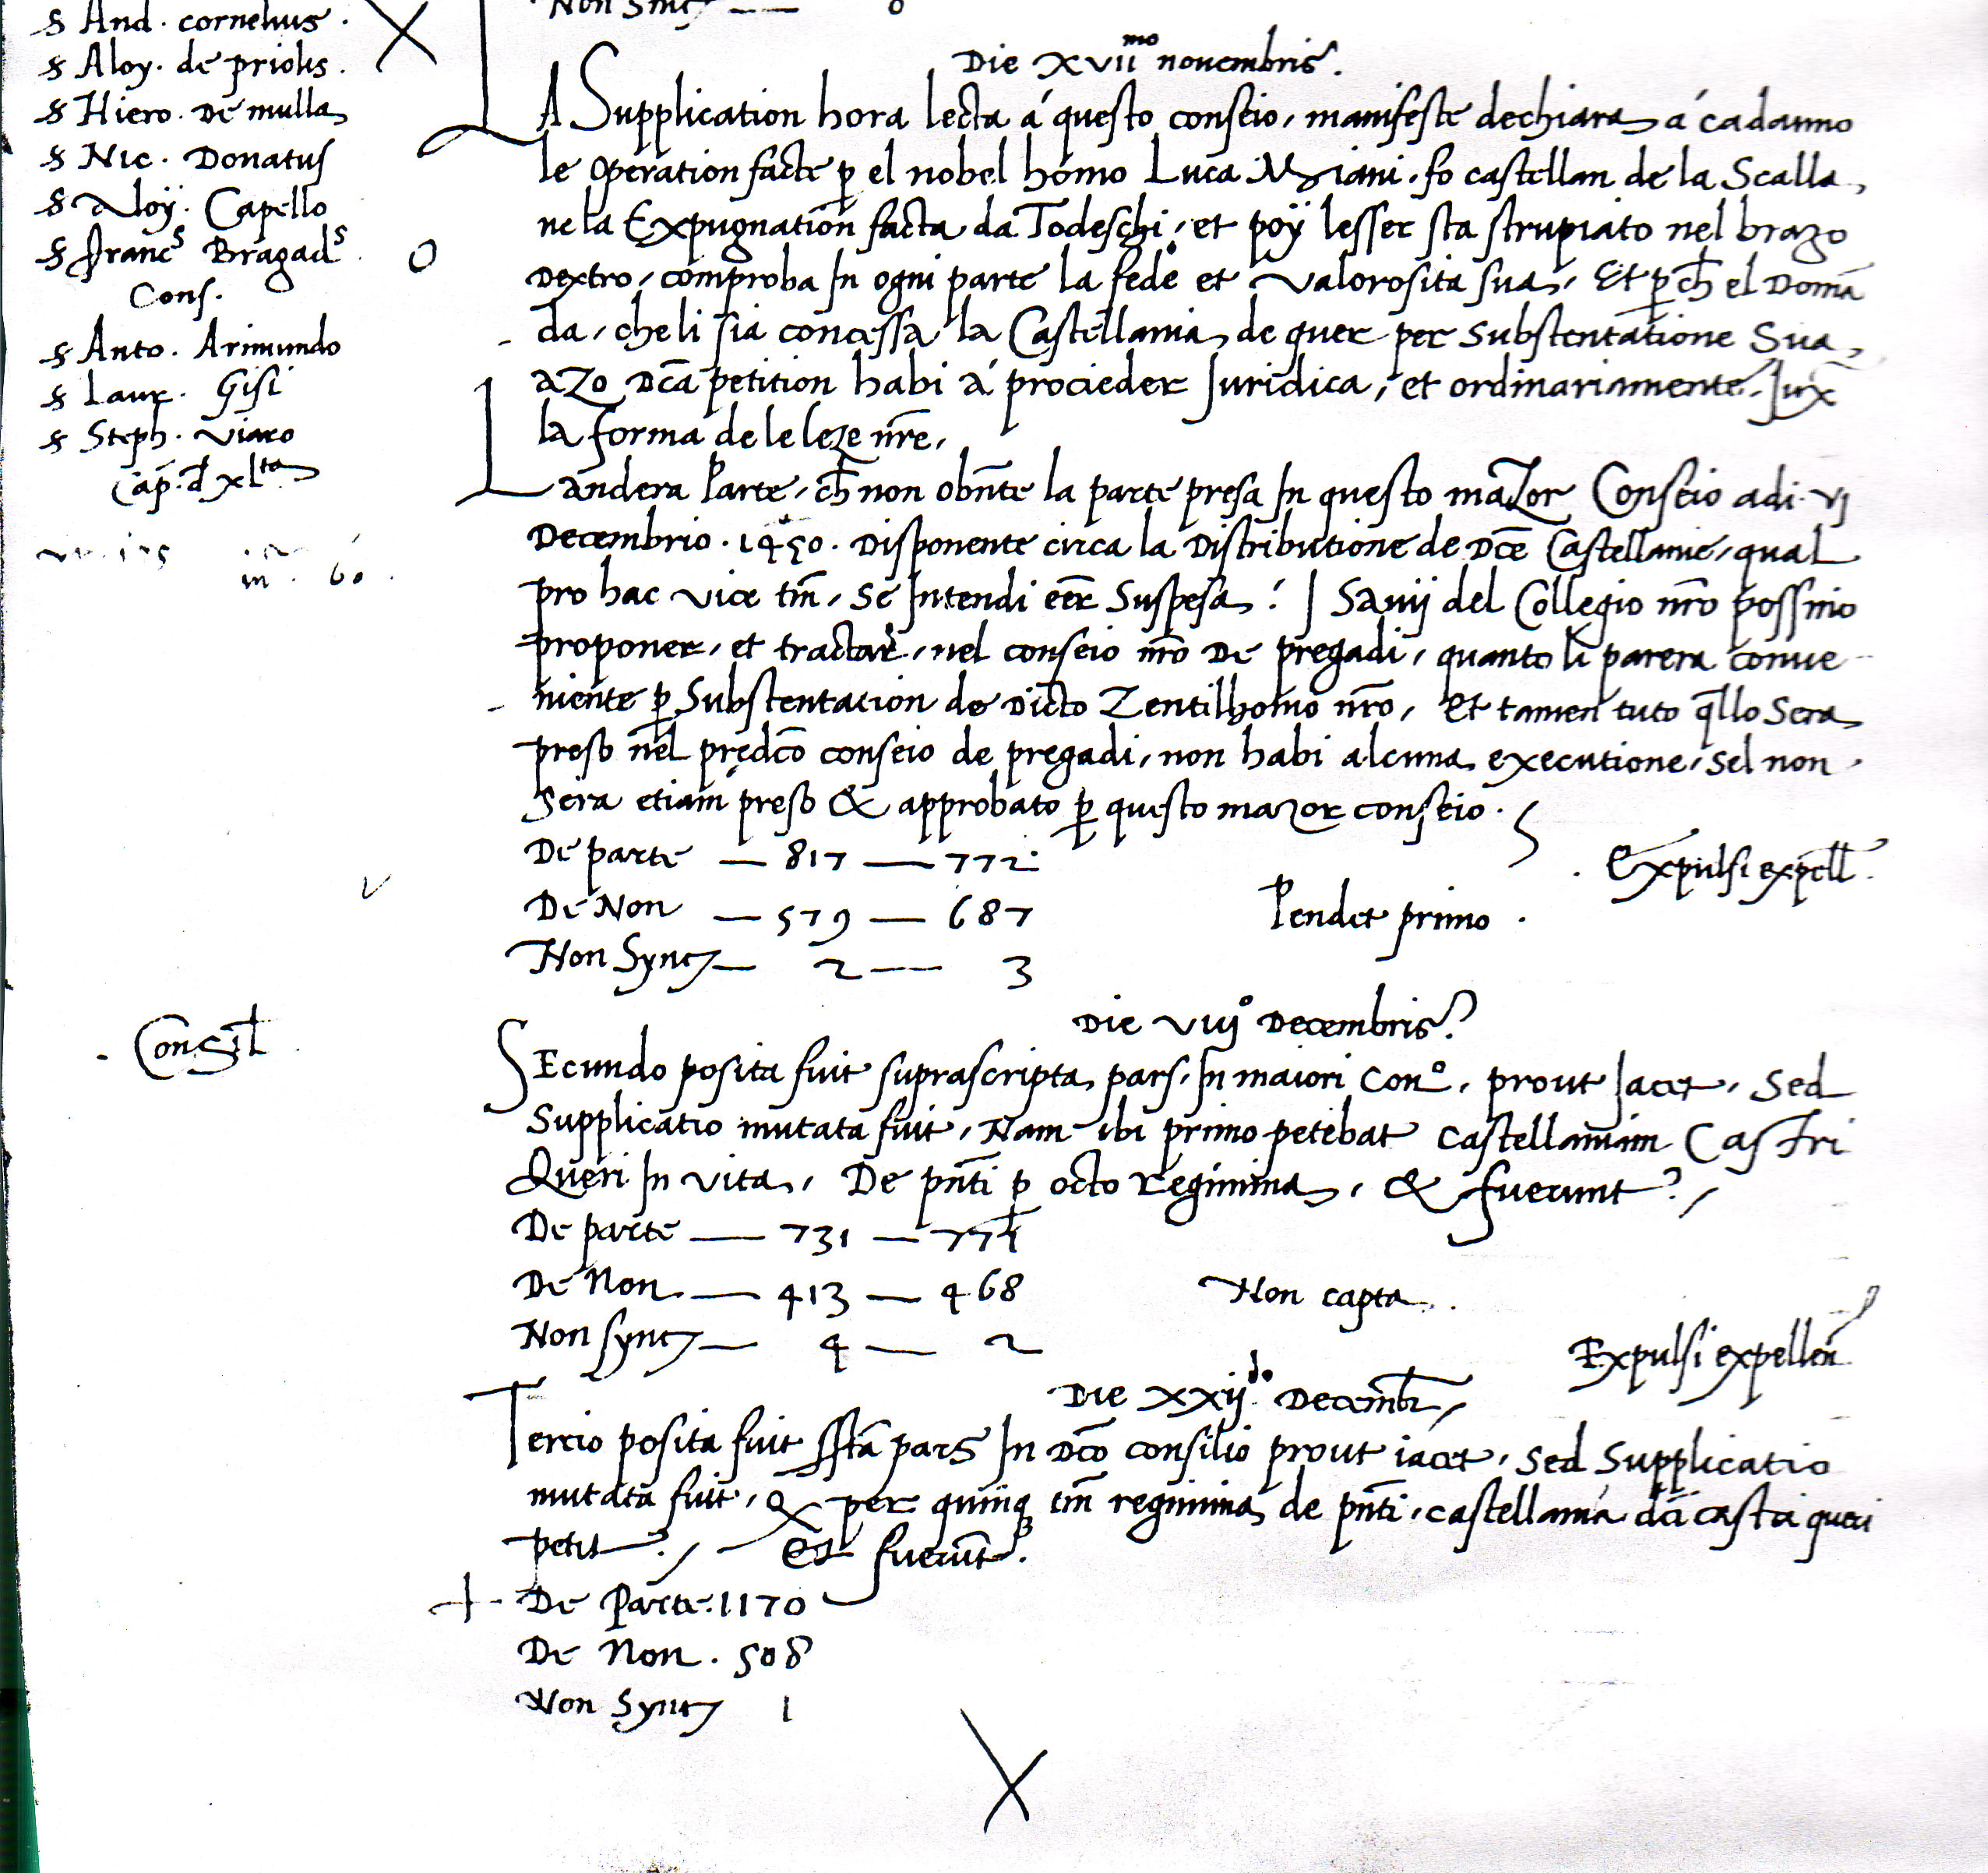 Non Sync — 0
S And. cornelius.
S Aloy. de priolis.
S Hiero. De mulla
S Nic. Donatus
S Aloÿ. Capello
S Francs Bragads
Cons.
S Anto. Arimundo
S Laur. Gisi
S Steph. viaro
Cap. d xlta
Die XVIImo novembris.
LA Supplication hora lecta á questo conseio, manifeste dechiara á cadauno
le operation facte p el nobel homo Luca Miani, fo castellan de la Scalla,
ne la Expugnation facta da Todeschi, et poÿ lesser sta strupiato nel brazo
Dextro, comproba In ogni parte la fede et valorosita sua, Et p ch el Doma
da, che li sia concessa la Castellania de quer per substentatione Sua,
azo Dca petition habi á procieder Juridica, et ordinariamente, Jux
la forma de le leze nre,
Landera Parte, ch non obnte la parte presa In questo mazor Conseio adi vj
Decembrio. 1450. Disponente circa la Distributione de Dce Castellanie, qual
pro hac vice tm, se Intendi eer Suspesa: I Savij del Collegio nro possino
proponer, et tractar, nel conseio nro De pregadi, quanto li parera conue
niente p Substentation de Dicto Zentilhomo nro, Et tamen tuto qllo Sera
preso nel predco conseio de pregadi, non habi alcuna executione, sel non
Sera etiam preso & approbato p questo mazor conseio.
De parte — 817 — 772
De Non — 579 — 687
Non Sync — 2 — 3
Pendet primo.
Expulsi expell.
Die viijo Decembris.
Consil
Secundo posita fuit suprascripta pars, In maiori Cono, prout Jacet, Sed
Supplicatio mutata fuit, Nam ibi primo petebat castellaniam Castri
Queri In vita, De pnti p octo regimina, & fuerunt.
De parte — 731 — 771
De Non — 413 — 468
Non Sync — 4 — 2
Non capta.
Expulsi expellen
Die xxijdo Decembr
Tercio posita fuit ssta pars In Dco consilio prout iacet, sed Supplicatio
mutata fuit, q per quinq tm regimina de pnti, castellania dci castri queri
petit. Et fuerunt.
De Parte. 1170
De Non. 508
Non Sync 1